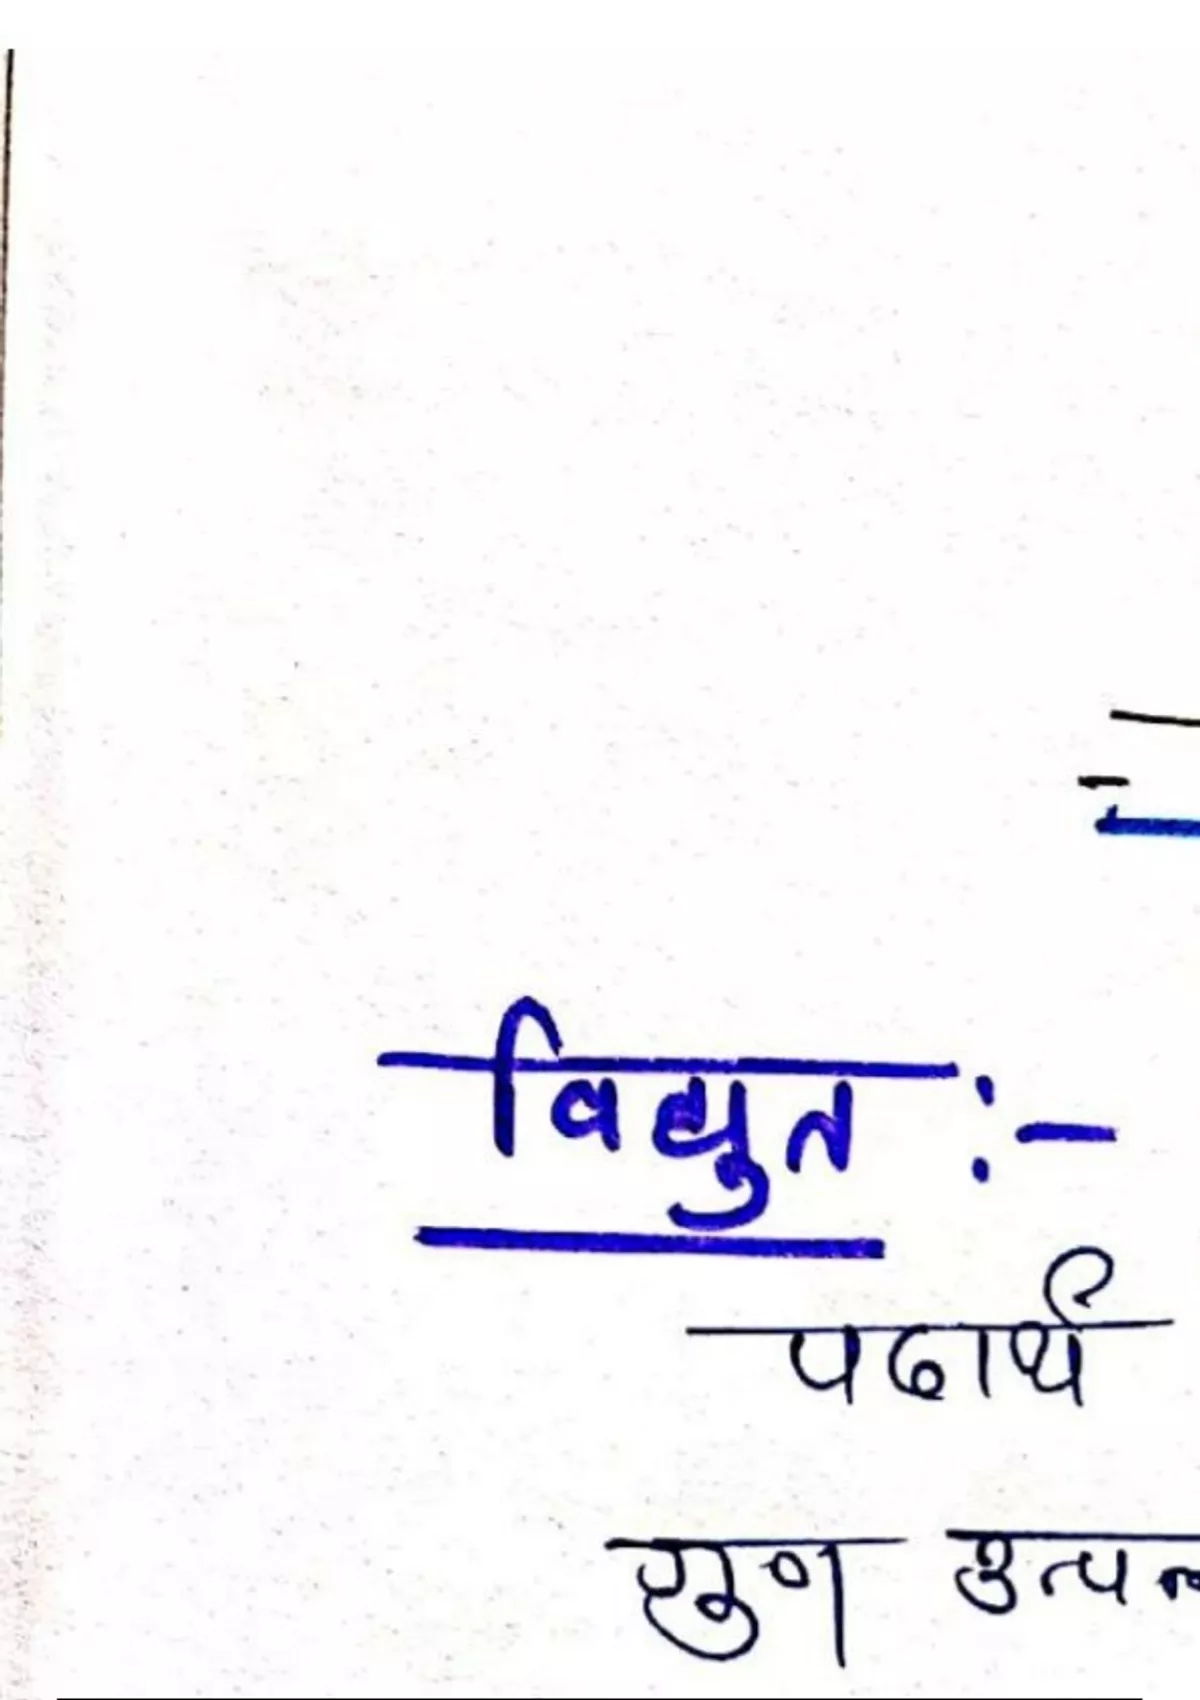 विद्युत :-
पदार्थ
गुण उत्पन्